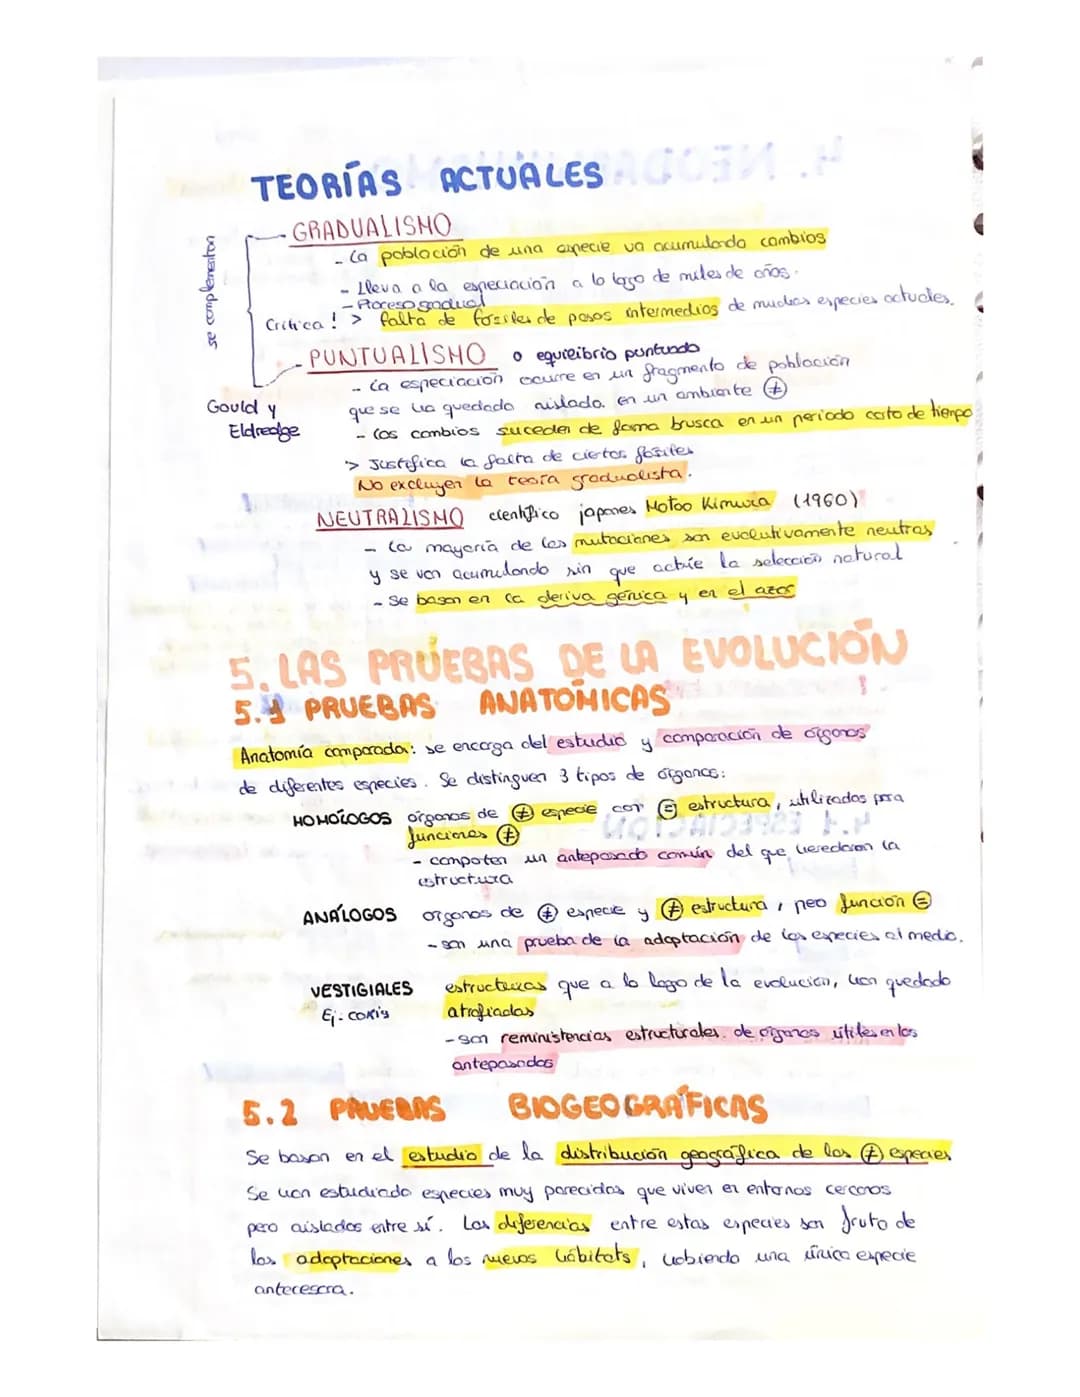 TEORÍAS ACTUALES
GRADUALISMO
- La población de una especie va acumulando cambios
- Lleva a la especiación a lo largo de miles de años.
- Proceso gradual
Crítica! > falta de fósiles de pasos intermedios de muchas especies actuales.
se complementan
PUNTUALISMO o equilibrio puntuado
- La especiación ocurre en un fragmento de población
que se ha quedado aislada en un ambiente ≠
Gould y
Eldredge
- Los cambios suceden de forma brusca en un periodo corto de tiempo
> Justifica la falta de ciertos fósiles
No excluyen la teoría gradualista.
NEUTRALISMO científico japones Motoo Kimura (1960)
- La mayoría de las mutaciones son evolutivamente neutras
y se van acumulando sin que actúe la selección natural
- Se basan en la deriva génica y en el azar
5. LAS PRUEBAS DE LA EVOLUCIÓN
5.1 PRUEBAS ANATÓMICAS
Anatomía comparada: se encarga del estudio y comparación de órganos
de diferentes especies. Se distinguen 3 tipos de órganos:
HOMÓLOGOS órganos de ≠ especie con = estructura, utilizados para
funciones ≠
- comparten un antepasado común del que heredaron la
estructura
ANÁLOGOS organos de ≠ especie y ≠ estructura, pero función =
- son una prueba de la adaptación de las especies al medio.
VESTIGIALES estructuras que a lo largo de la evolución, han quedado
Ej: coxis atrofiadas
- son reministencias estructurales de órganos útiles en los
antepasados
5.2 PRUEBAS BIOGEOGRÁFICAS
Se basan en el estudio de la distribución geográfica de las ≠ especies
Se han estudiado especies muy parecidas que viven en entornos cercanos
pero aislados entre sí. Las diferencias entre estas especies son fruto de
las adaptaciones a los nuevos hábitats, habiendo una única especie
antecesora.